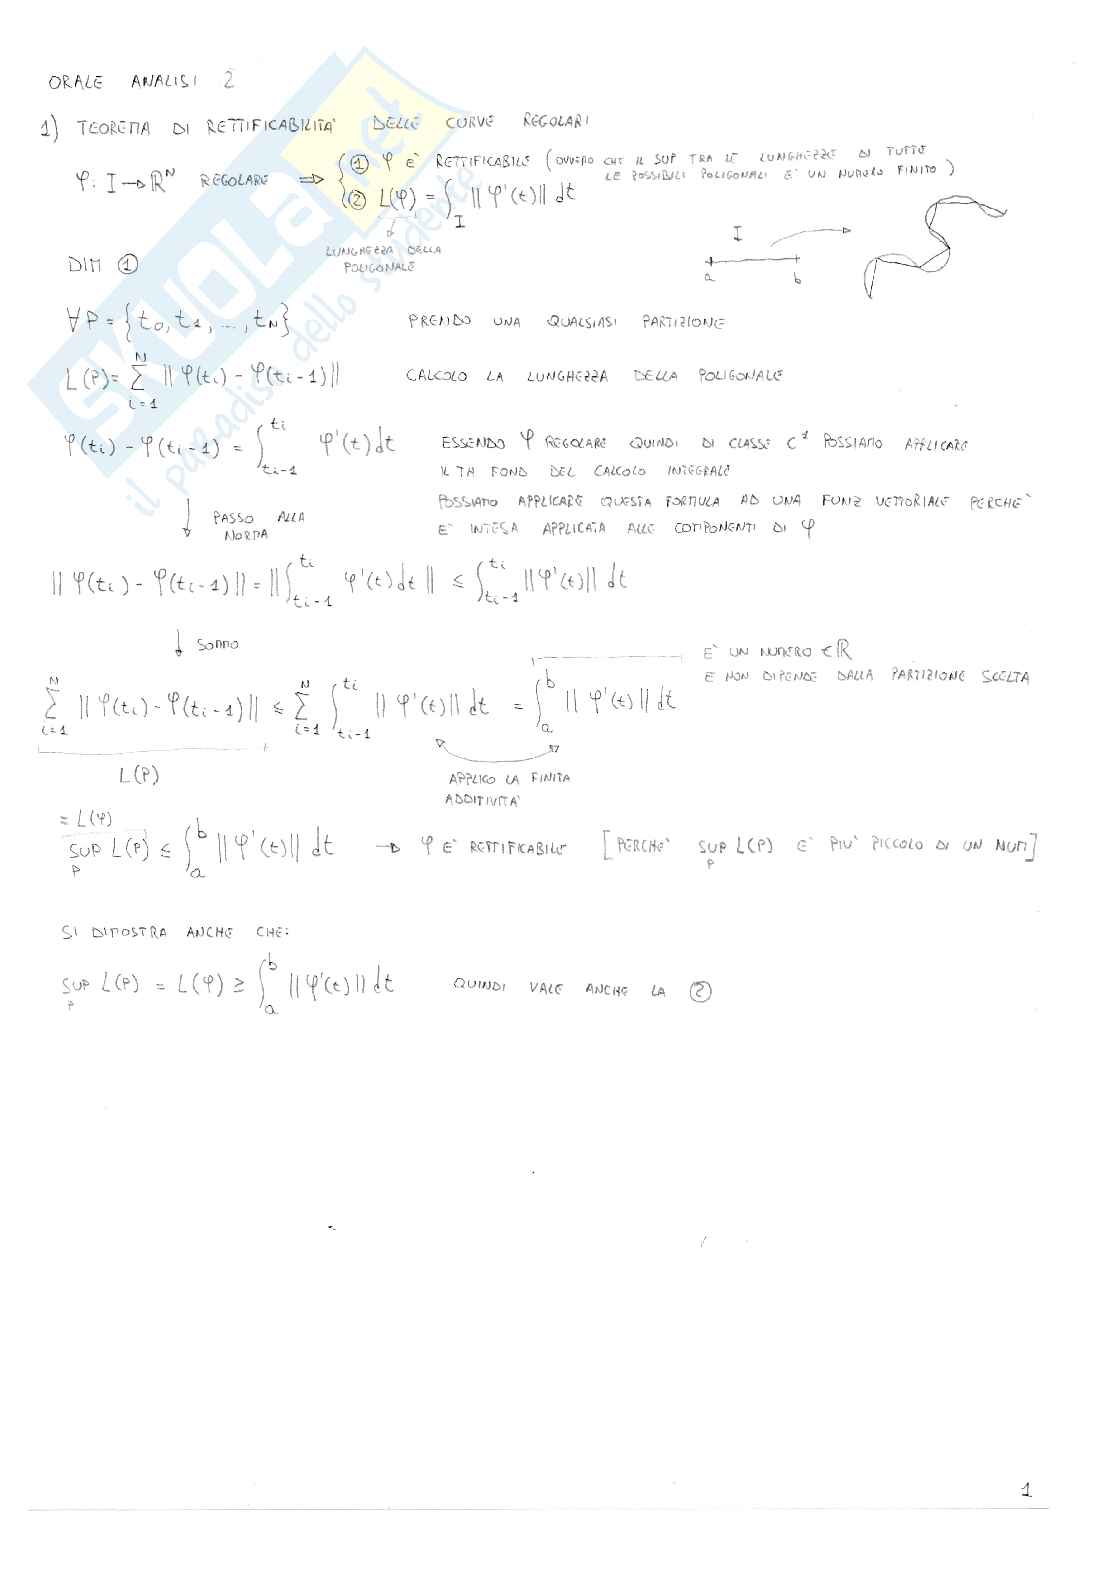 ORALE ANALISI 2
1) TEOREMA DI RETTIFICABILITA' DELLE CURVE REGOLARI
φ: I → ℝᴺ REGOLARE ⇒ { ① φ E' RETTIFICABILE (OVVERO CHE IL SUP TRA LE LUNGHEZZE DI TUTTE
LE POSSIBILI POLIGONALI E' UN NUMERO FINITO)
② L(φ) = ∫_I ||φ'(t)|| dt
LUNGHEZZA DELLA
POLIGONALE
I
a b
DIM ①
∀P = {t₀, t₁, ..., t_N} PRENDO UNA QUALSIASI PARTIZIONE
L(P) = ∑_{i=1}^{N} ||φ(t_i) - φ(t_{i-1})|| CALCOLO LA LUNGHEZZA DELLA POLIGONALE
φ(t_i) - φ(t_{i-1}) = ∫_{t_{i-1}}^{t_i} φ'(t) dt ESSENDO φ REGOLARE QUINDI DI CLASSE C¹ POSSIAMO APPLICARE
IL TH FOND DEL CALCOLO INTEGRALE
POSSIAMO APPLICARE QUESTA FORMULA AD UNA FUNZ VETTORIALE PERCHE'
E' INTESA APPLICATA ALLE COMPONENTI DI φ
↓ PASSO ALLA
NORMA
||φ(t_i) - φ(t_{i-1})|| = ||∫_{t_{i-1}}^{t_i} φ'(t) dt|| ≤ ∫_{t_{i-1}}^{t_i} ||φ'(t)|| dt
↓ SOMMO
E' UN NUMERO ∈ ℝ
E NON DIPENDE DALLA PARTIZIONE SCELTA
∑_{i=1}^{N} ||φ(t_i) - φ(t_{i-1})|| ≤ ∑_{i=1}^{N} ∫_{t_{i-1}}^{t_i} ||φ'(t)|| dt = ∫_a^b ||φ'(t)|| dt
L(P)
APPLICO LA FINITA
ADDITIVITA'
= L(φ)
SUP_P L(P) ≤ ∫_a^b ||φ'(t)|| dt → φ E' RETTIFICABILE [PERCHE' SUP_P L(P) E' PIU' PICCOLO DI UN NUM]
SI DIMOSTRA ANCHE CHE:
SUP_P L(P) = L(φ) ≥ ∫_a^b ||φ'(t)|| dt QUINDI VALE ANCHE LA ②
1
SKUOLA.net
il paradiso dello studente